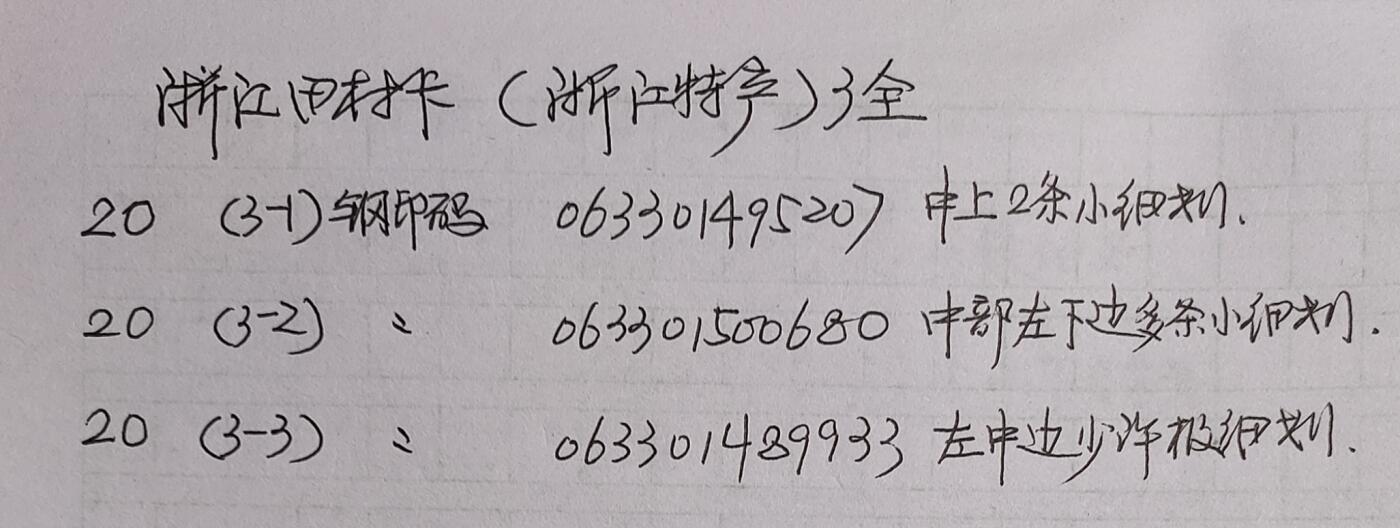 浙江田村卡(浙江特产)3全
20 (3-1)钢印码 063301495207 中上2条小细划.
20 (3-2) 〃 063301500680 中部左下边多条小细划.
20 (3-3) 〃 063301489933 左中边少许极细划.